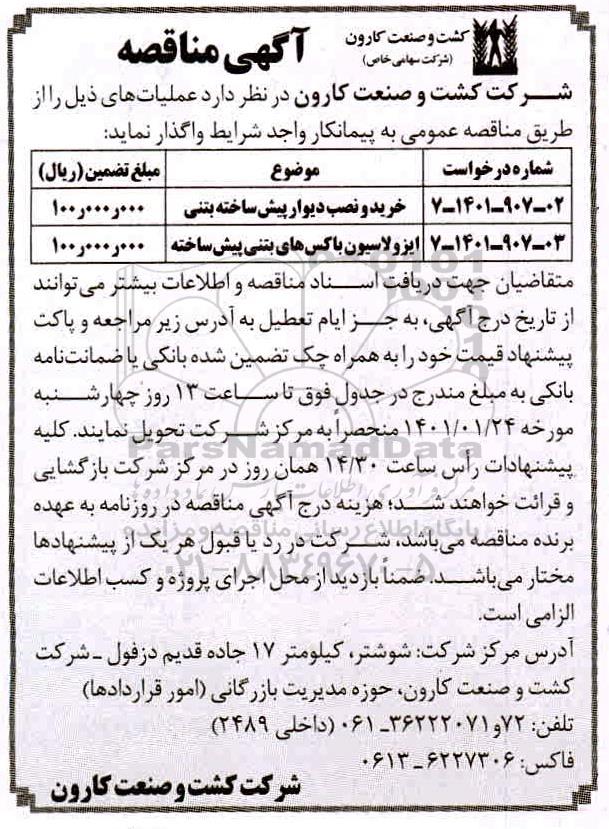 کشت و صنعت کارون
(شرکت سهامی خاص)
آگهی مناقصه
شرکت کشت و صنعت کارون در نظر دارد عملیات‌های ذیل را از
طریق مناقصه عمومی به پیمانکار واجد شرایط واگذار نماید:
شماره درخواست موضوع مبلغ تضمین (ریال)
۷-۱۴۰۱-۹۰۷-۰۲ خرید و نصب دیوار پیش ساخته بتنی ۱۰۰٫۰۰۰٫۰۰۰
۷-۱۴۰۱-۹۰۷-۰۳ ایزولاسیون باکس‌های بتنی پیش ساخته ۱۰۰٫۰۰۰٫۰۰۰
متقاضیان جهت دریافت اسناد مناقصه و اطلاعات بیشتر می‌توانند
از تاریخ درج آگهی، به جز ایام تعطیل به آدرس زیر مراجعه و پاکت
پیشنهاد قیمت خود را به همراه چک تضمین شده بانکی یا ضمانت‌نامه
بانکی به مبلغ مندرج در جدول فوق تا ساعت ۱۳ روز چهارشنبه
مورخه ۱۴۰۱/۰۱/۲۴ منحصراً به مرکز شرکت تحویل نمایند. کلیه
ParsNamadData
پیشنهادات رأس ساعت ۱۴/۳۰ همان روز در مرکز شرکت بازگشایی
و قرائت خواهند شد؛ هزینه درج آگهی مناقصه در روزنامه به عهده
پایگاه اطلاع رسانی مناقصه و مزایده
برنده مناقصه می‌باشد، شرکت در رد یا قبول هر یک از پیشنهادها
۰۲۱-۸۸۳۴۹۶۷۰-۵
مختار می‌باشد. ضمناً بازدید از محل اجرای پروژه و کسب اطلاعات
الزامی است.
آدرس مرکز شرکت: شوشتر، کیلومتر ۱۷ جاده قدیم دزفول - شرکت
کشت و صنعت کارون، حوزه مدیریت بازرگانی (امور قراردادها)
تلفن: ۷۲و۳۶۲۲۲۰۷۱-۰۶۱ (داخلی ۲۴۸۹)
فاکس: ۶۲۲۷۳۰۶-۰۶۱۳
شرکت کشت و صنعت کارون